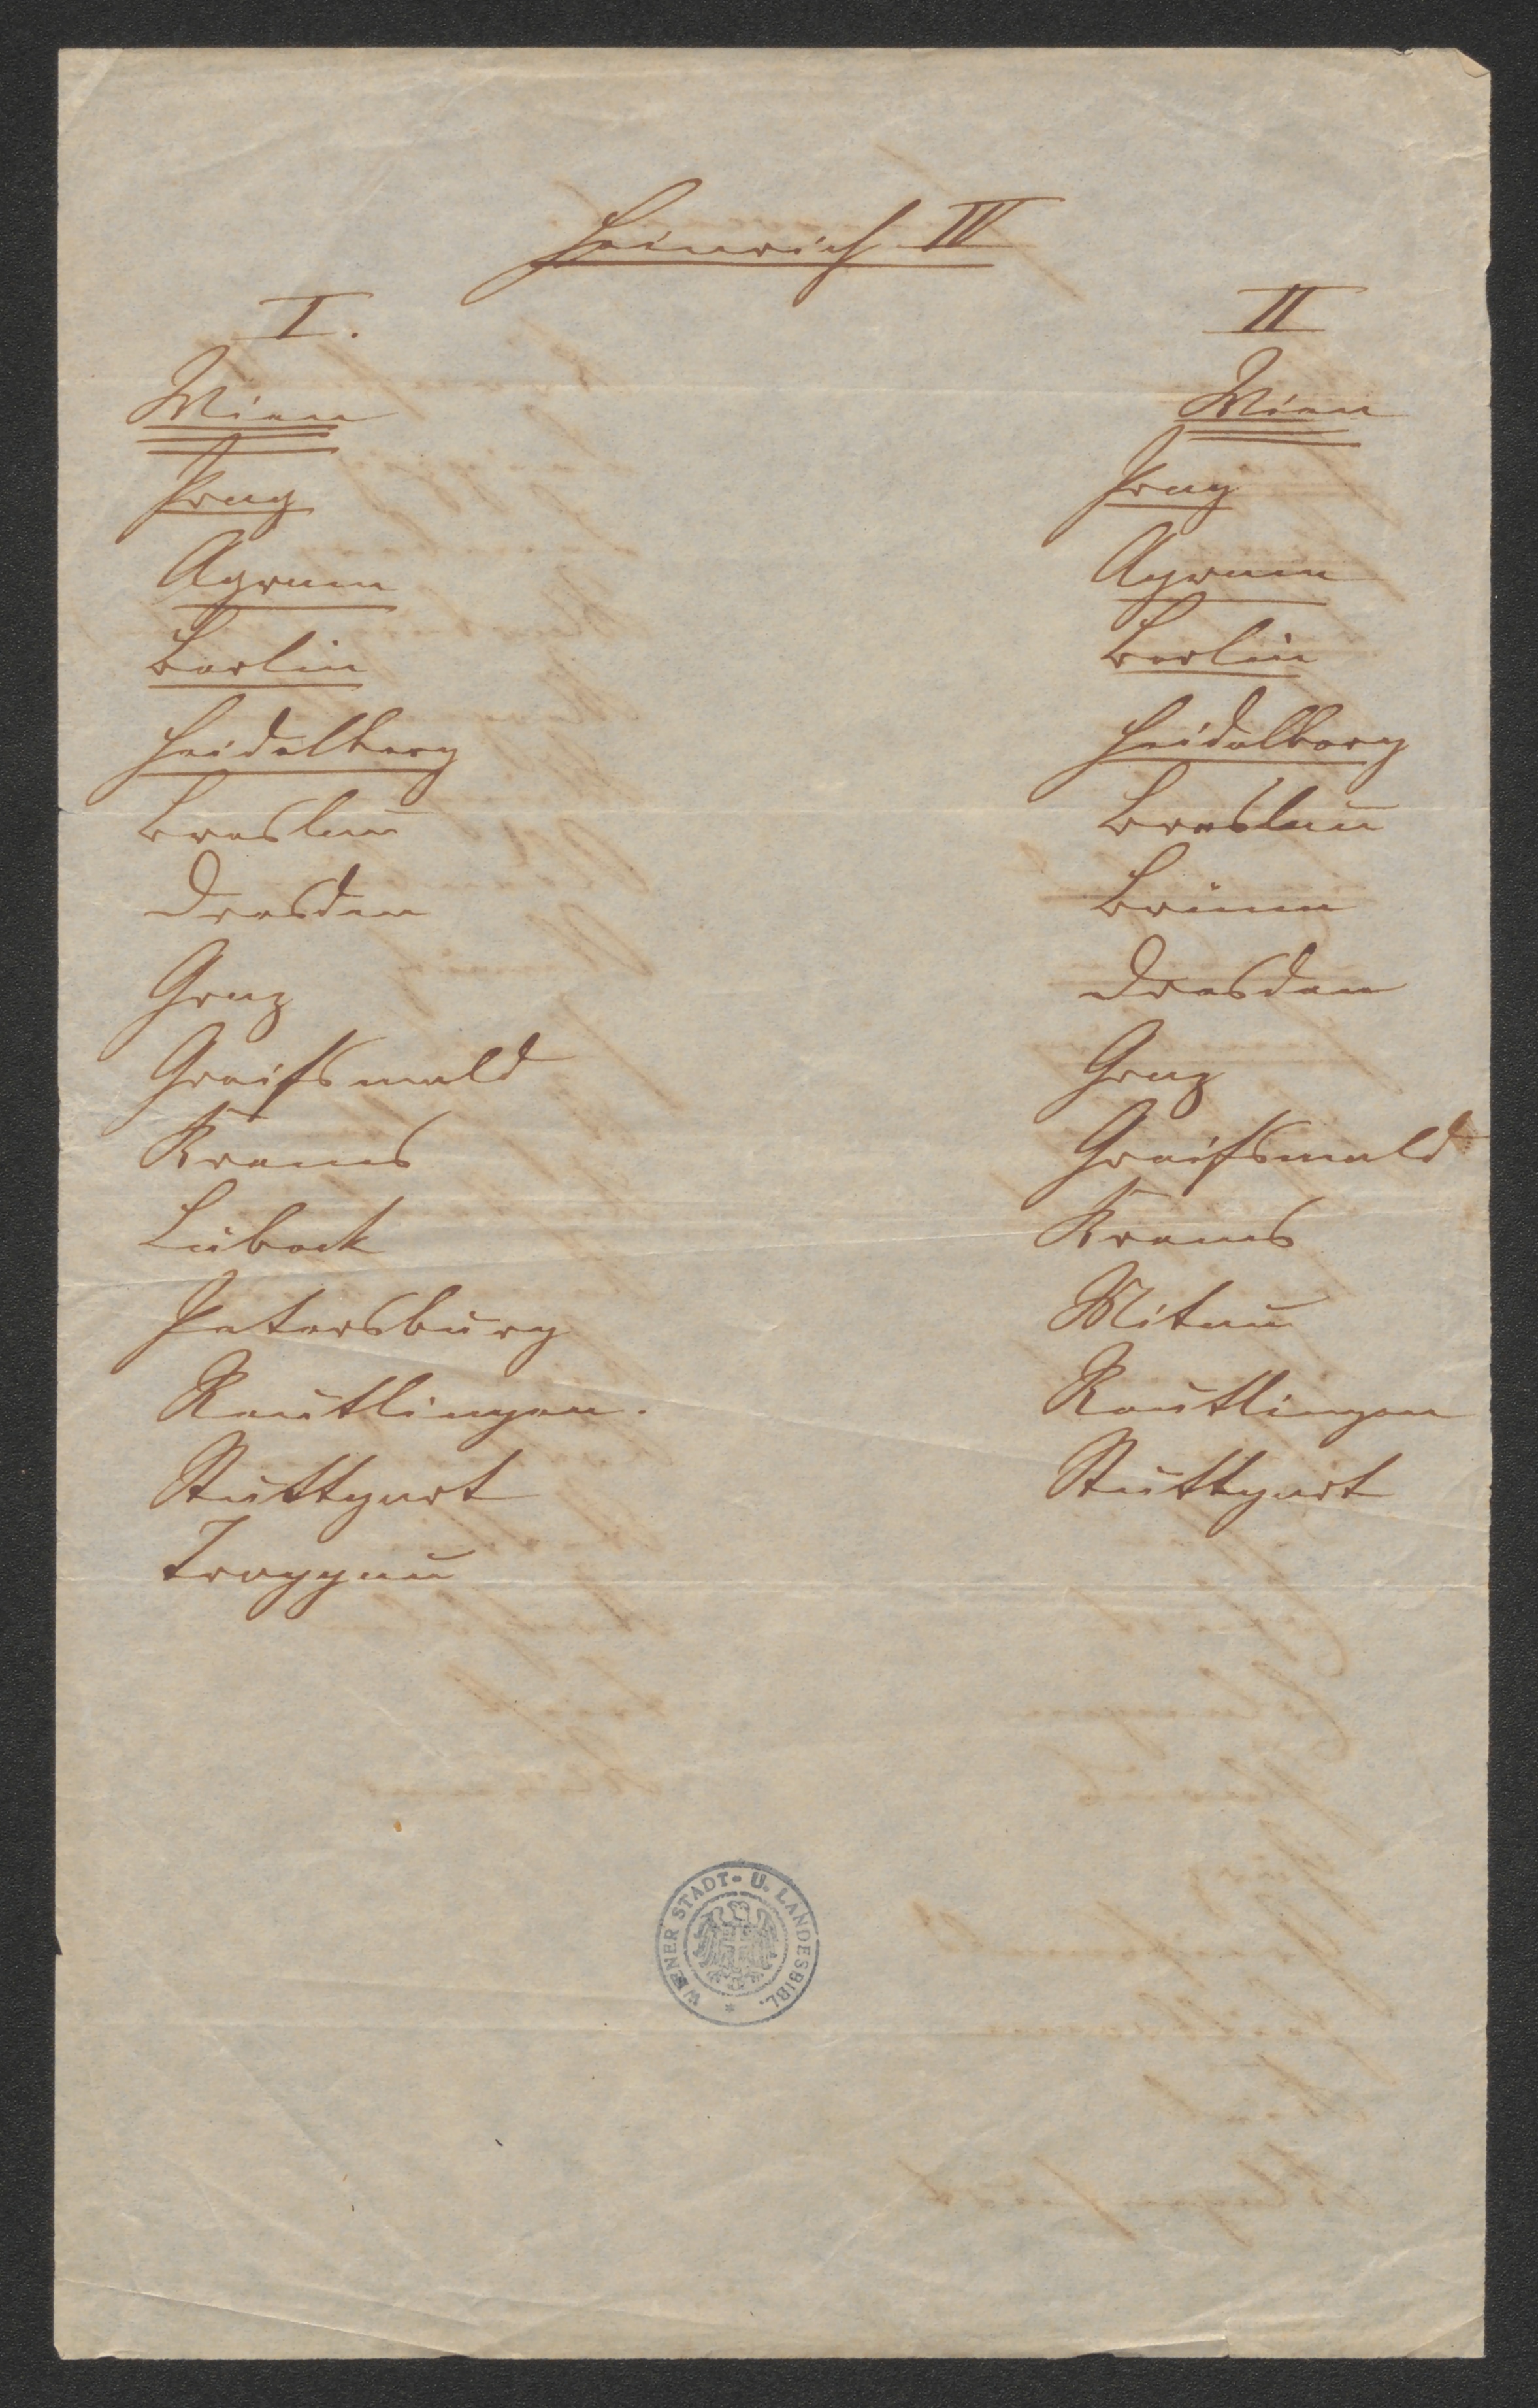 Heinrich IV
I.
Wien
Prag
Agram
Berlin
Heidelberg
Breslau
Dresden
Graz
Greifswald
Krems
Lübeck
Petersburg
Reutlingen.
Stuttgart
Troppau
II
Wien
Prag
Agram
Berlin
Heidelberg
Breslau
Brünn
Dresden
Graz
Greifswald
Krems
Mitau
Reutlingen
Stuttgart
WIENER STADT- U. LANDESBIBL.